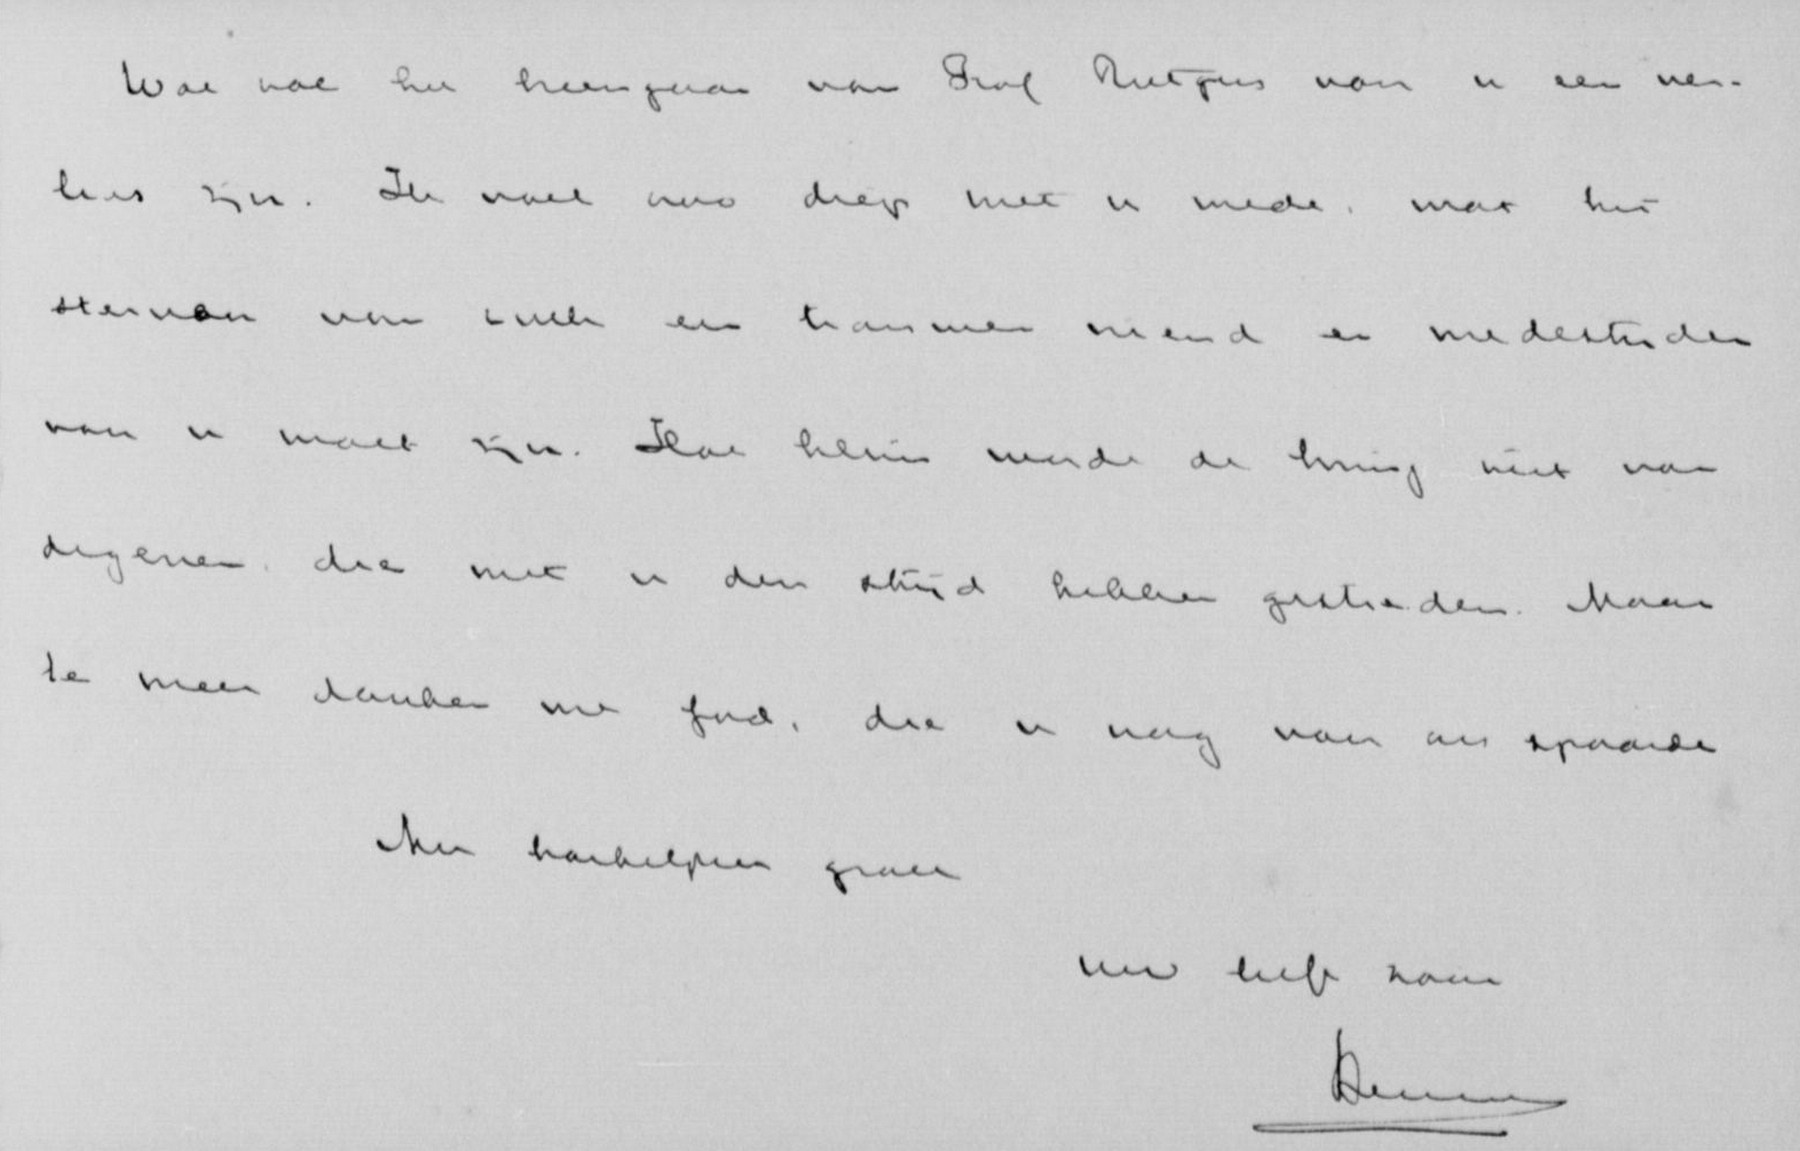 Wat zal het heengaan van Prof Rutgers voor u een ver-
lies zijn. Ik voel zoo diep met u mede, wat het
sterven van zulk een trouwen vriend en medestrijder
voor u moet zijn. Hoe klein werd de kring niet van
degenen, die met u den strijd hebben gestreden. Maar
te meer danken we God, die u nog voor ons spaarde
Met hartelijken groet
uw liefh zoon